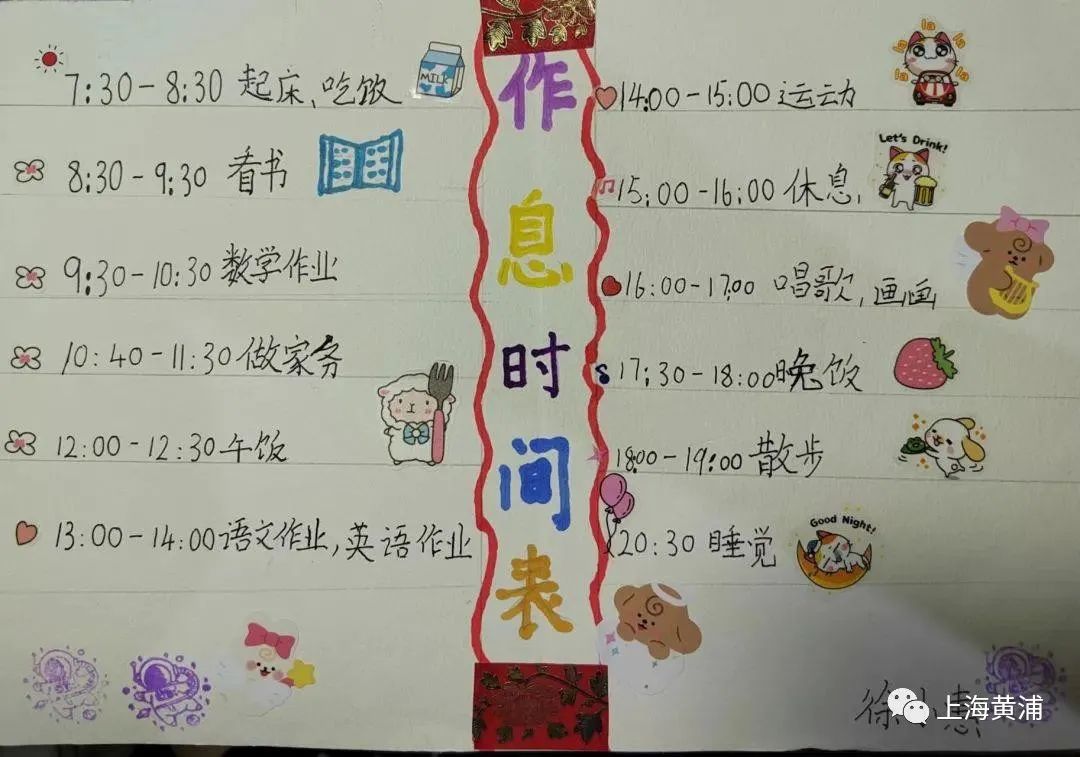 作息时间表
7:30-8:30 起床、吃饭
MILK
8:30-9:30 看书
9:30-10:30 数学作业
10:40-11:30 做家务
12:00-12:30 午饭
13:00-14:00 语文作业,英语作业
la la la la la
14:00-15:00 运动
Let's Drink!
15:00-16:00 休息,
16:00-17:00 唱歌,画画
17:30-18:00 晚饭
18:00-19:00 散步
20:30 睡觉
Good Night!
徐小惠
上海黄浦